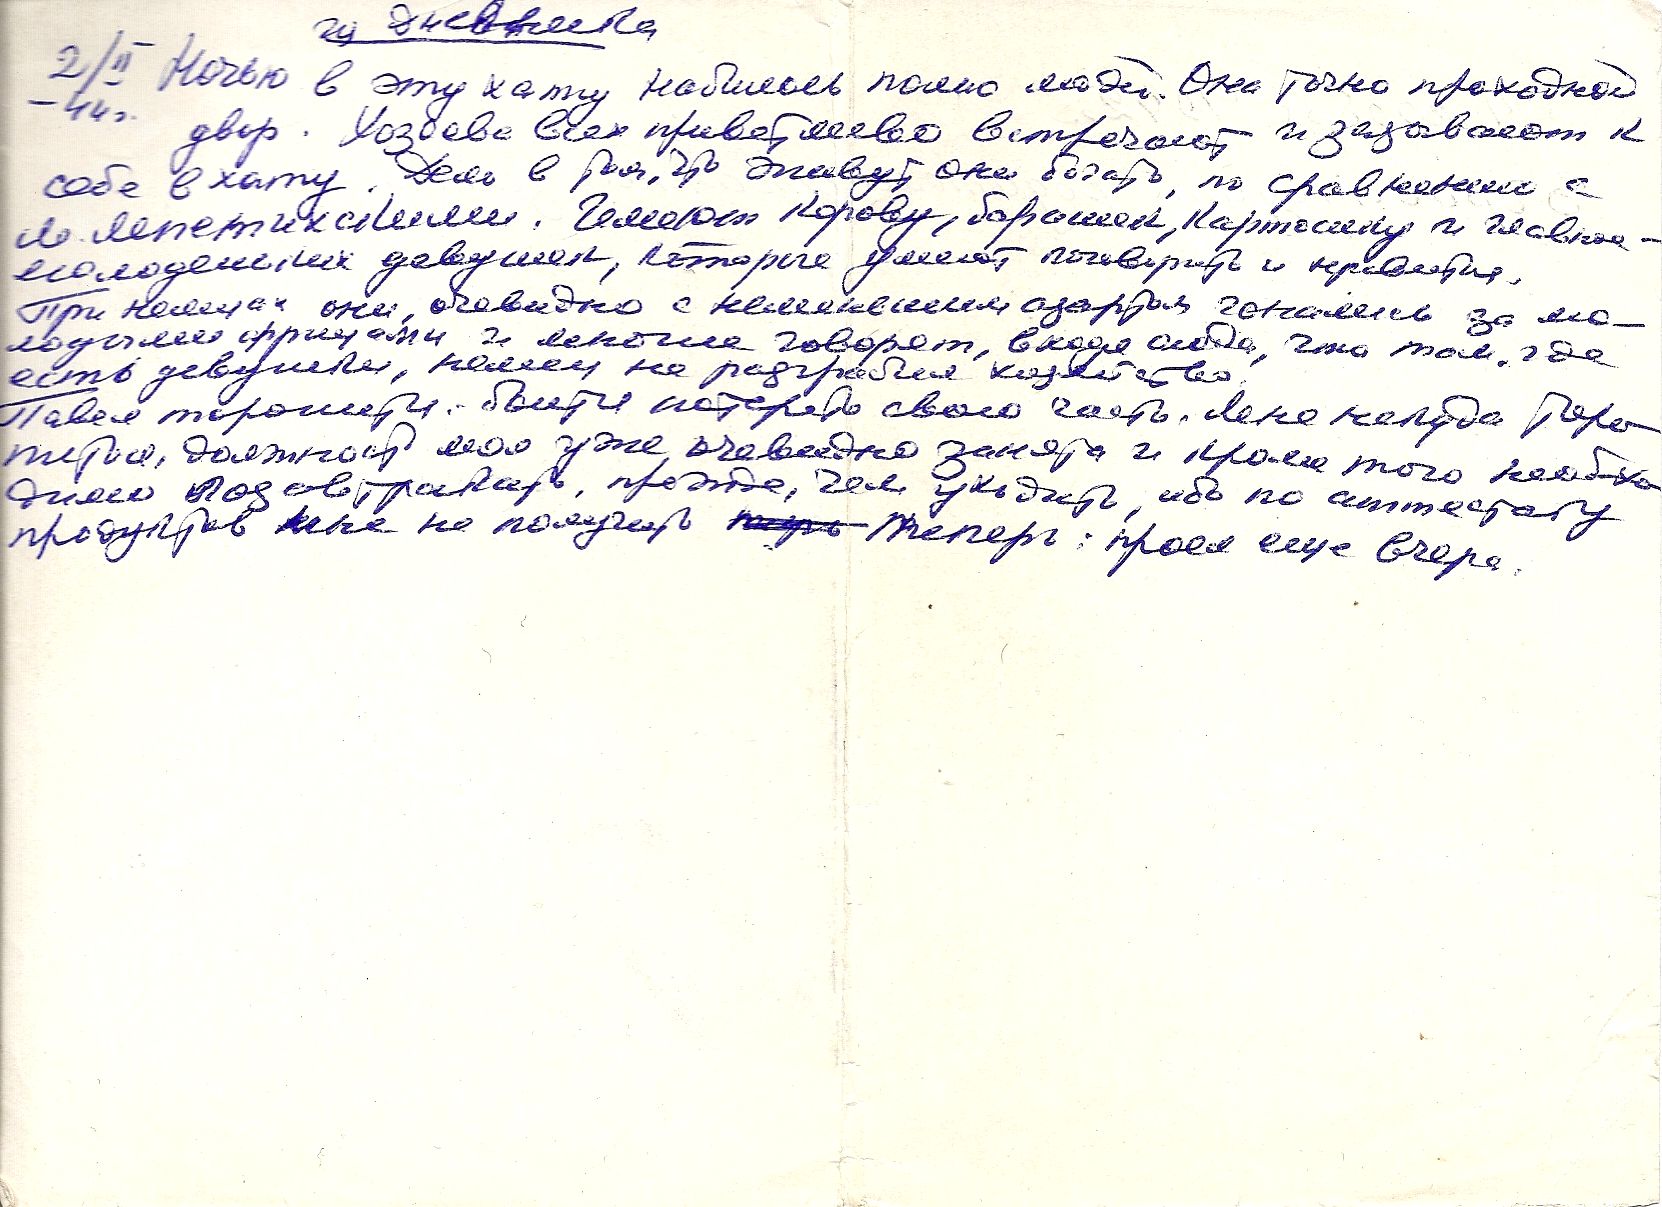 из дневника
2/II Ночью в эту хату набилось полно людей. Она точно проходной
-44г. двор. Хозяева всех приветливо встречают и зазывают к
себе в хату. Дело в том, что живут они богато, по сравнению с
М. Лепетихскими. Имеют корову, барашек, картошку и главное –
молоденьких девушек, которые умеют поговорить и нравиться.
При немцах они, очевидно с неменьшим азартом гонялись за мо-
лодыми фрицами и многие говорят, входя сюда, что там, где
есть девушки, немец не разграбил хозяйство.
Павел торопится. боится потерять свою часть. Мне некуда торо-
питься, должность моя уже, очевидно занята и кроме того необхо
димо позавтракать, прежде, чем уходить, ибо по аттестату
продуктов мне не получить теперь: проел еще вчера.